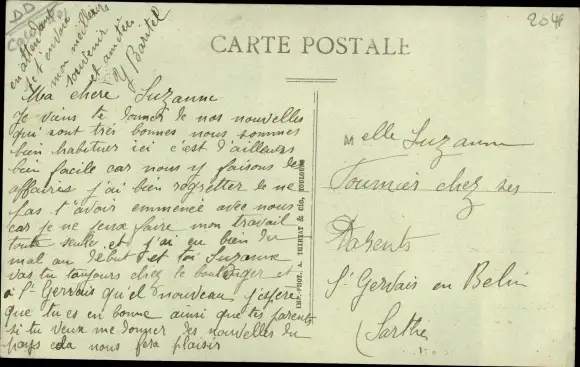 CARTE POSTALE
Ma chere Suzanne
Je viens te donner de nos nouvelles
qui sont très bonnes nous sommes
bien habituer ici c'est d'ailleurs
bien facile car nous y faisons des
affaires j'ai bien regretter de ne
pas t'avoir emmenée avec nous
car je ne peux faire mon travail
toute seule et j'ai eu bien du
mal au debut et toi Suzanne
vas tu toujours chez le boulanger et
à St Gervais qu'el nouveau j'espère
que tu es en bonne ainsi que tes parents
si tu veux me donner des nouvelles du
pays cela nous fera plaisir
en attendant
je t'envoie
mon meilleurs
souvenir
et amitiés
Y Bartel
IMP.-PHOT. A. THIRIAT & Cie, TOULOUSE
Melle Suzanne
Fournier chez ses
Parents
St Gervais en Belin
(Sarthe
204